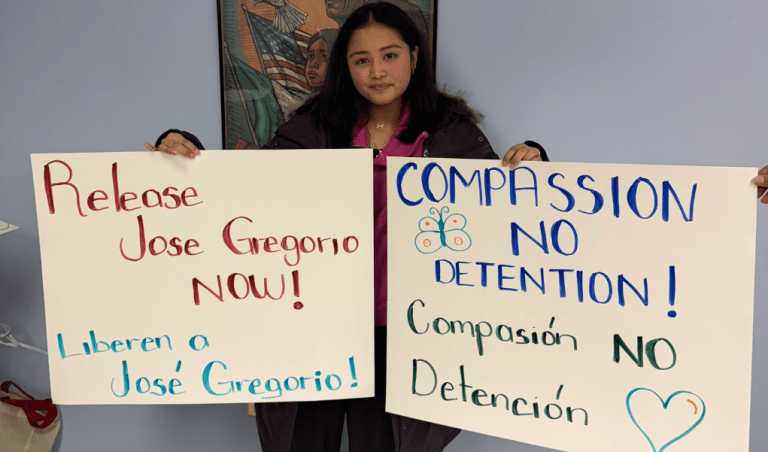 Release
Jose Gregorio
NOW!
Liberen a
José Gregorio!
COMPASSION
NO
DETENTION!
Compasión NO
Detención